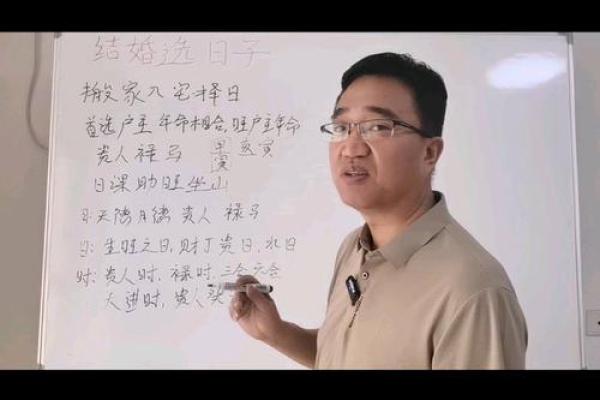 结婚选日子
搬家入宅择日
首选户主年命相合,旺户主年命
贵人禄马 亥寅
日课助旺坐山
月:天德月德贵人禄马
日:生旺之日,财丁贵日,水日
时:贵人时,禄时,三合六合
大进时,贵人